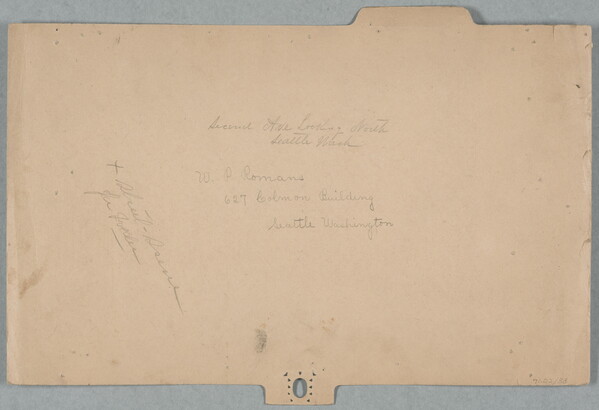 Second Ave Looking North
Seattle Wash
W. P. Romans
627 Colman Building
Seattle Washington
+ Street-Scene